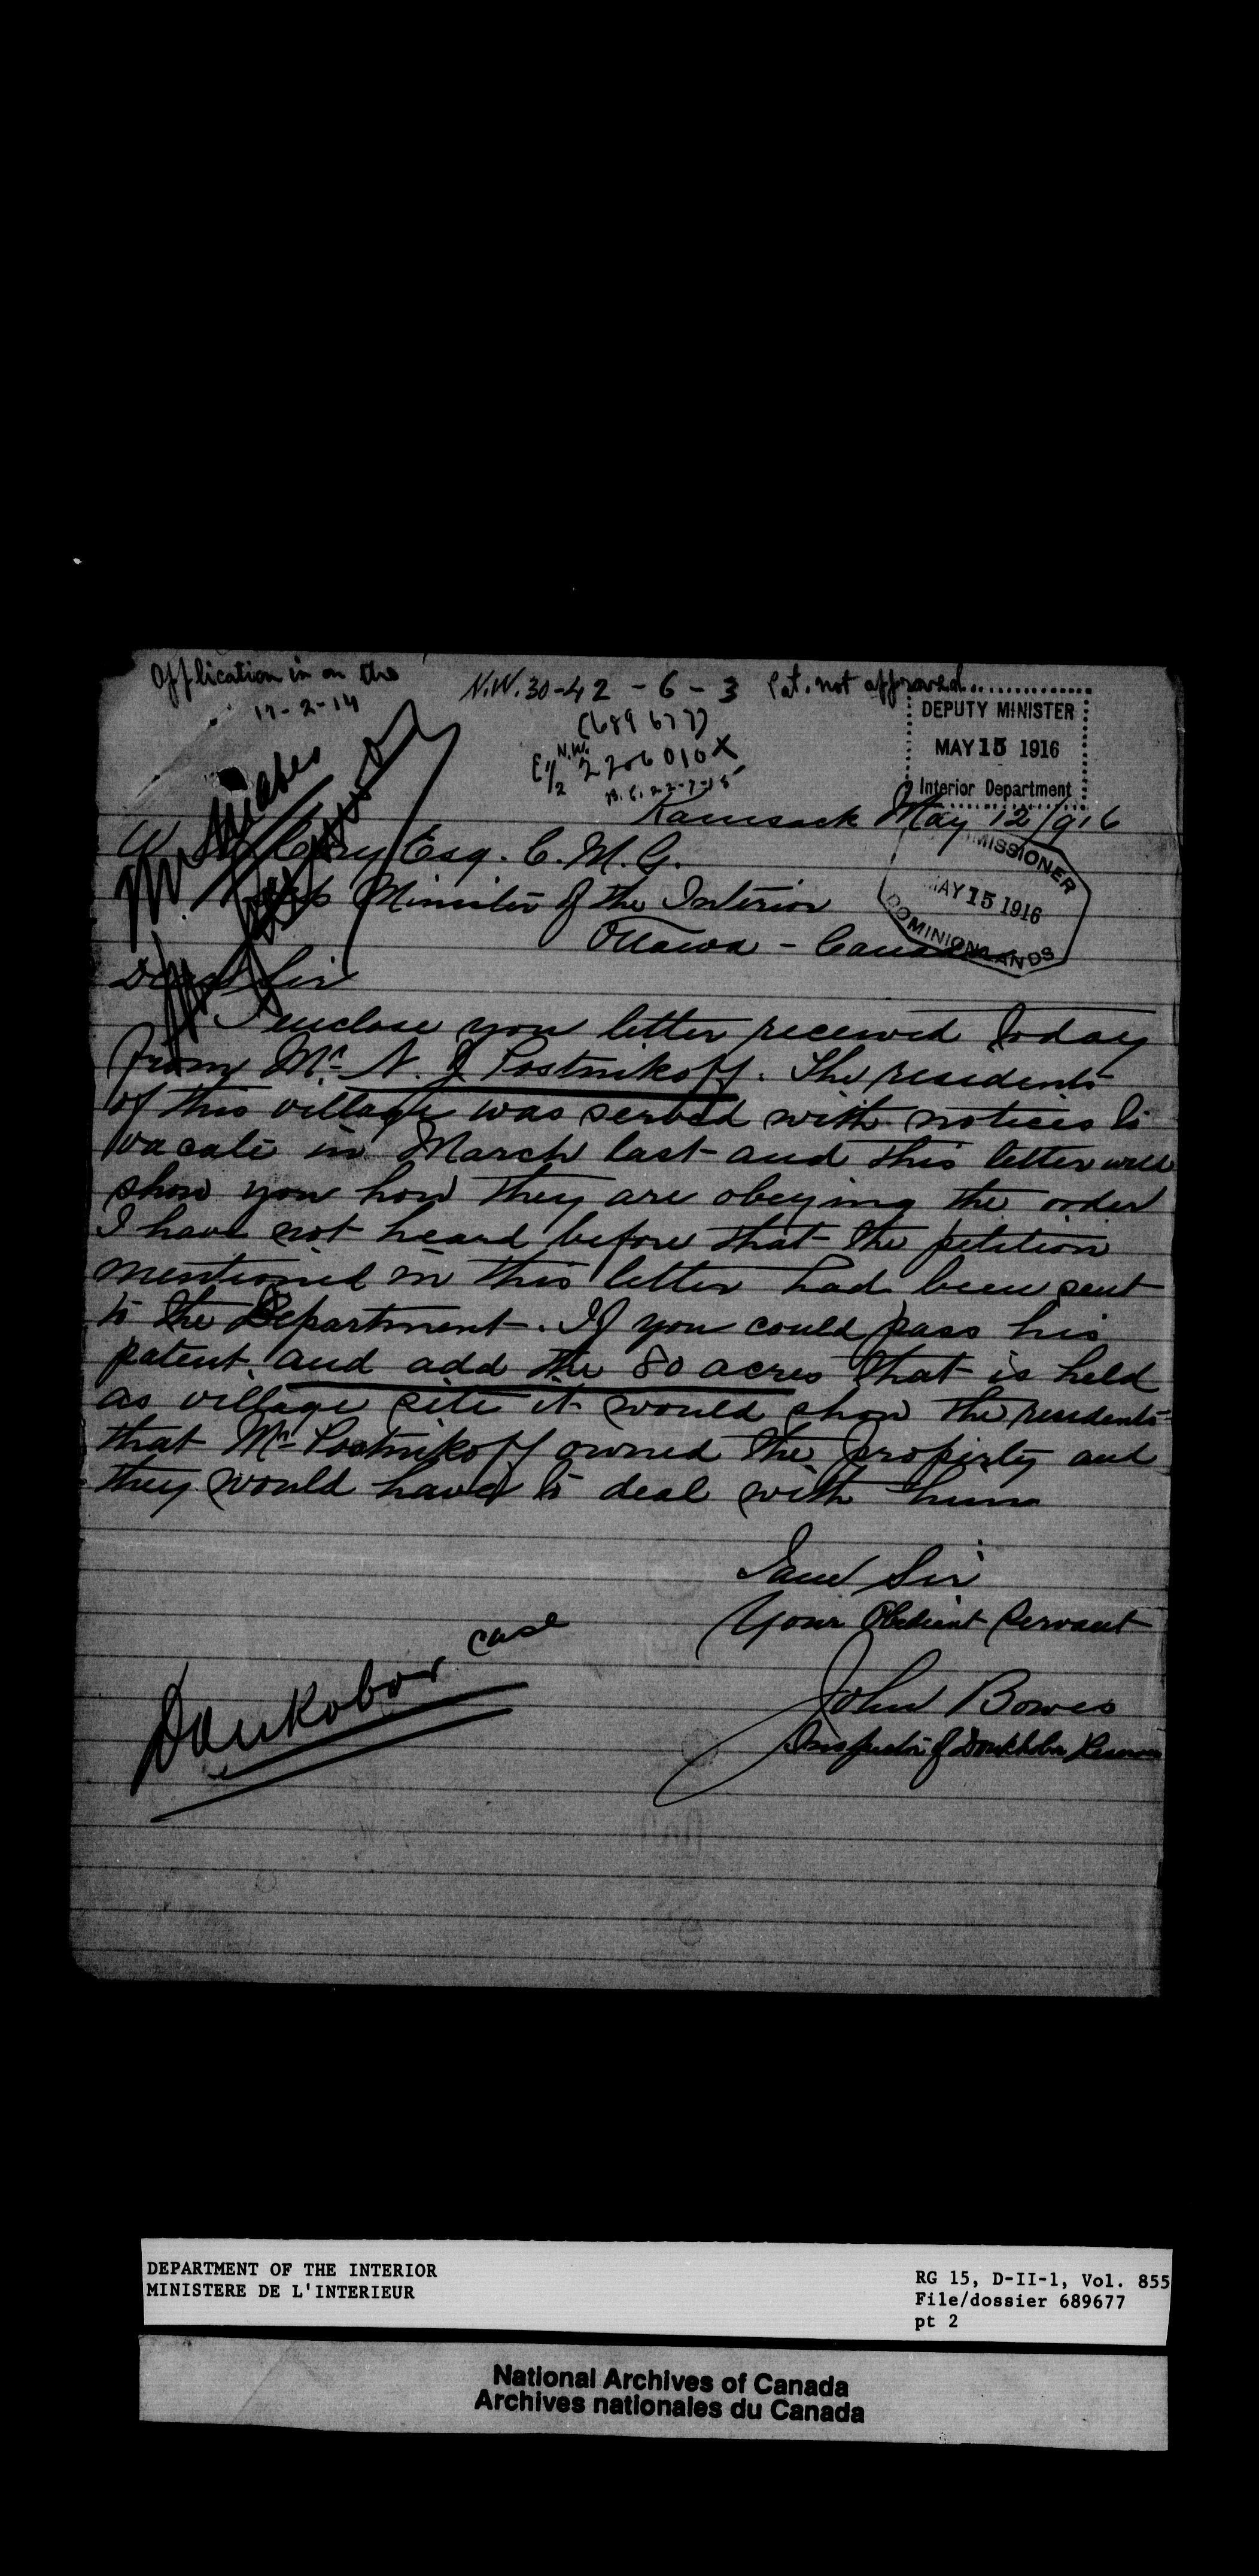 Application in on the
17-2-14
N.W. 30-42-6-3 Pat. not approved
(689677)
E 1/2 N.W. 2206010 X
22-7-15
DEPUTY MINISTER
MAY 15 1916
Interior Department
Kamsack May 12/916
W Cory Esq. C. M. G.
Minister of the Interior
Ottawa - Canada
MISSIONER
MAY 15 1916
DOMINION LANDS
Dear Sir
I enclose you letter received today
from Mr. N. J Postnikoff. The residents
of this village was served with notices to
vacate in March last and this letter will
show you how they are obeying the order
I have not heard before that the petition
mentioned in this letter had been sent
to the Department. If you could pass his
patent and add the 80 acres that is held
as village site it would show the residents
that Mr Postnikoff owned the property and
they would have to deal with him
I am Sir
Your Obedient Servant
John Bowes
Inspector of Doukhobor Reserves
Doukobor case
DEPARTMENT OF THE INTERIOR
MINISTERE DE L'INTERIEUR
RG 15, D-II-1, Vol. 855
File/dossier 689677
pt 2
National Archives of Canada
Archives nationales du Canada